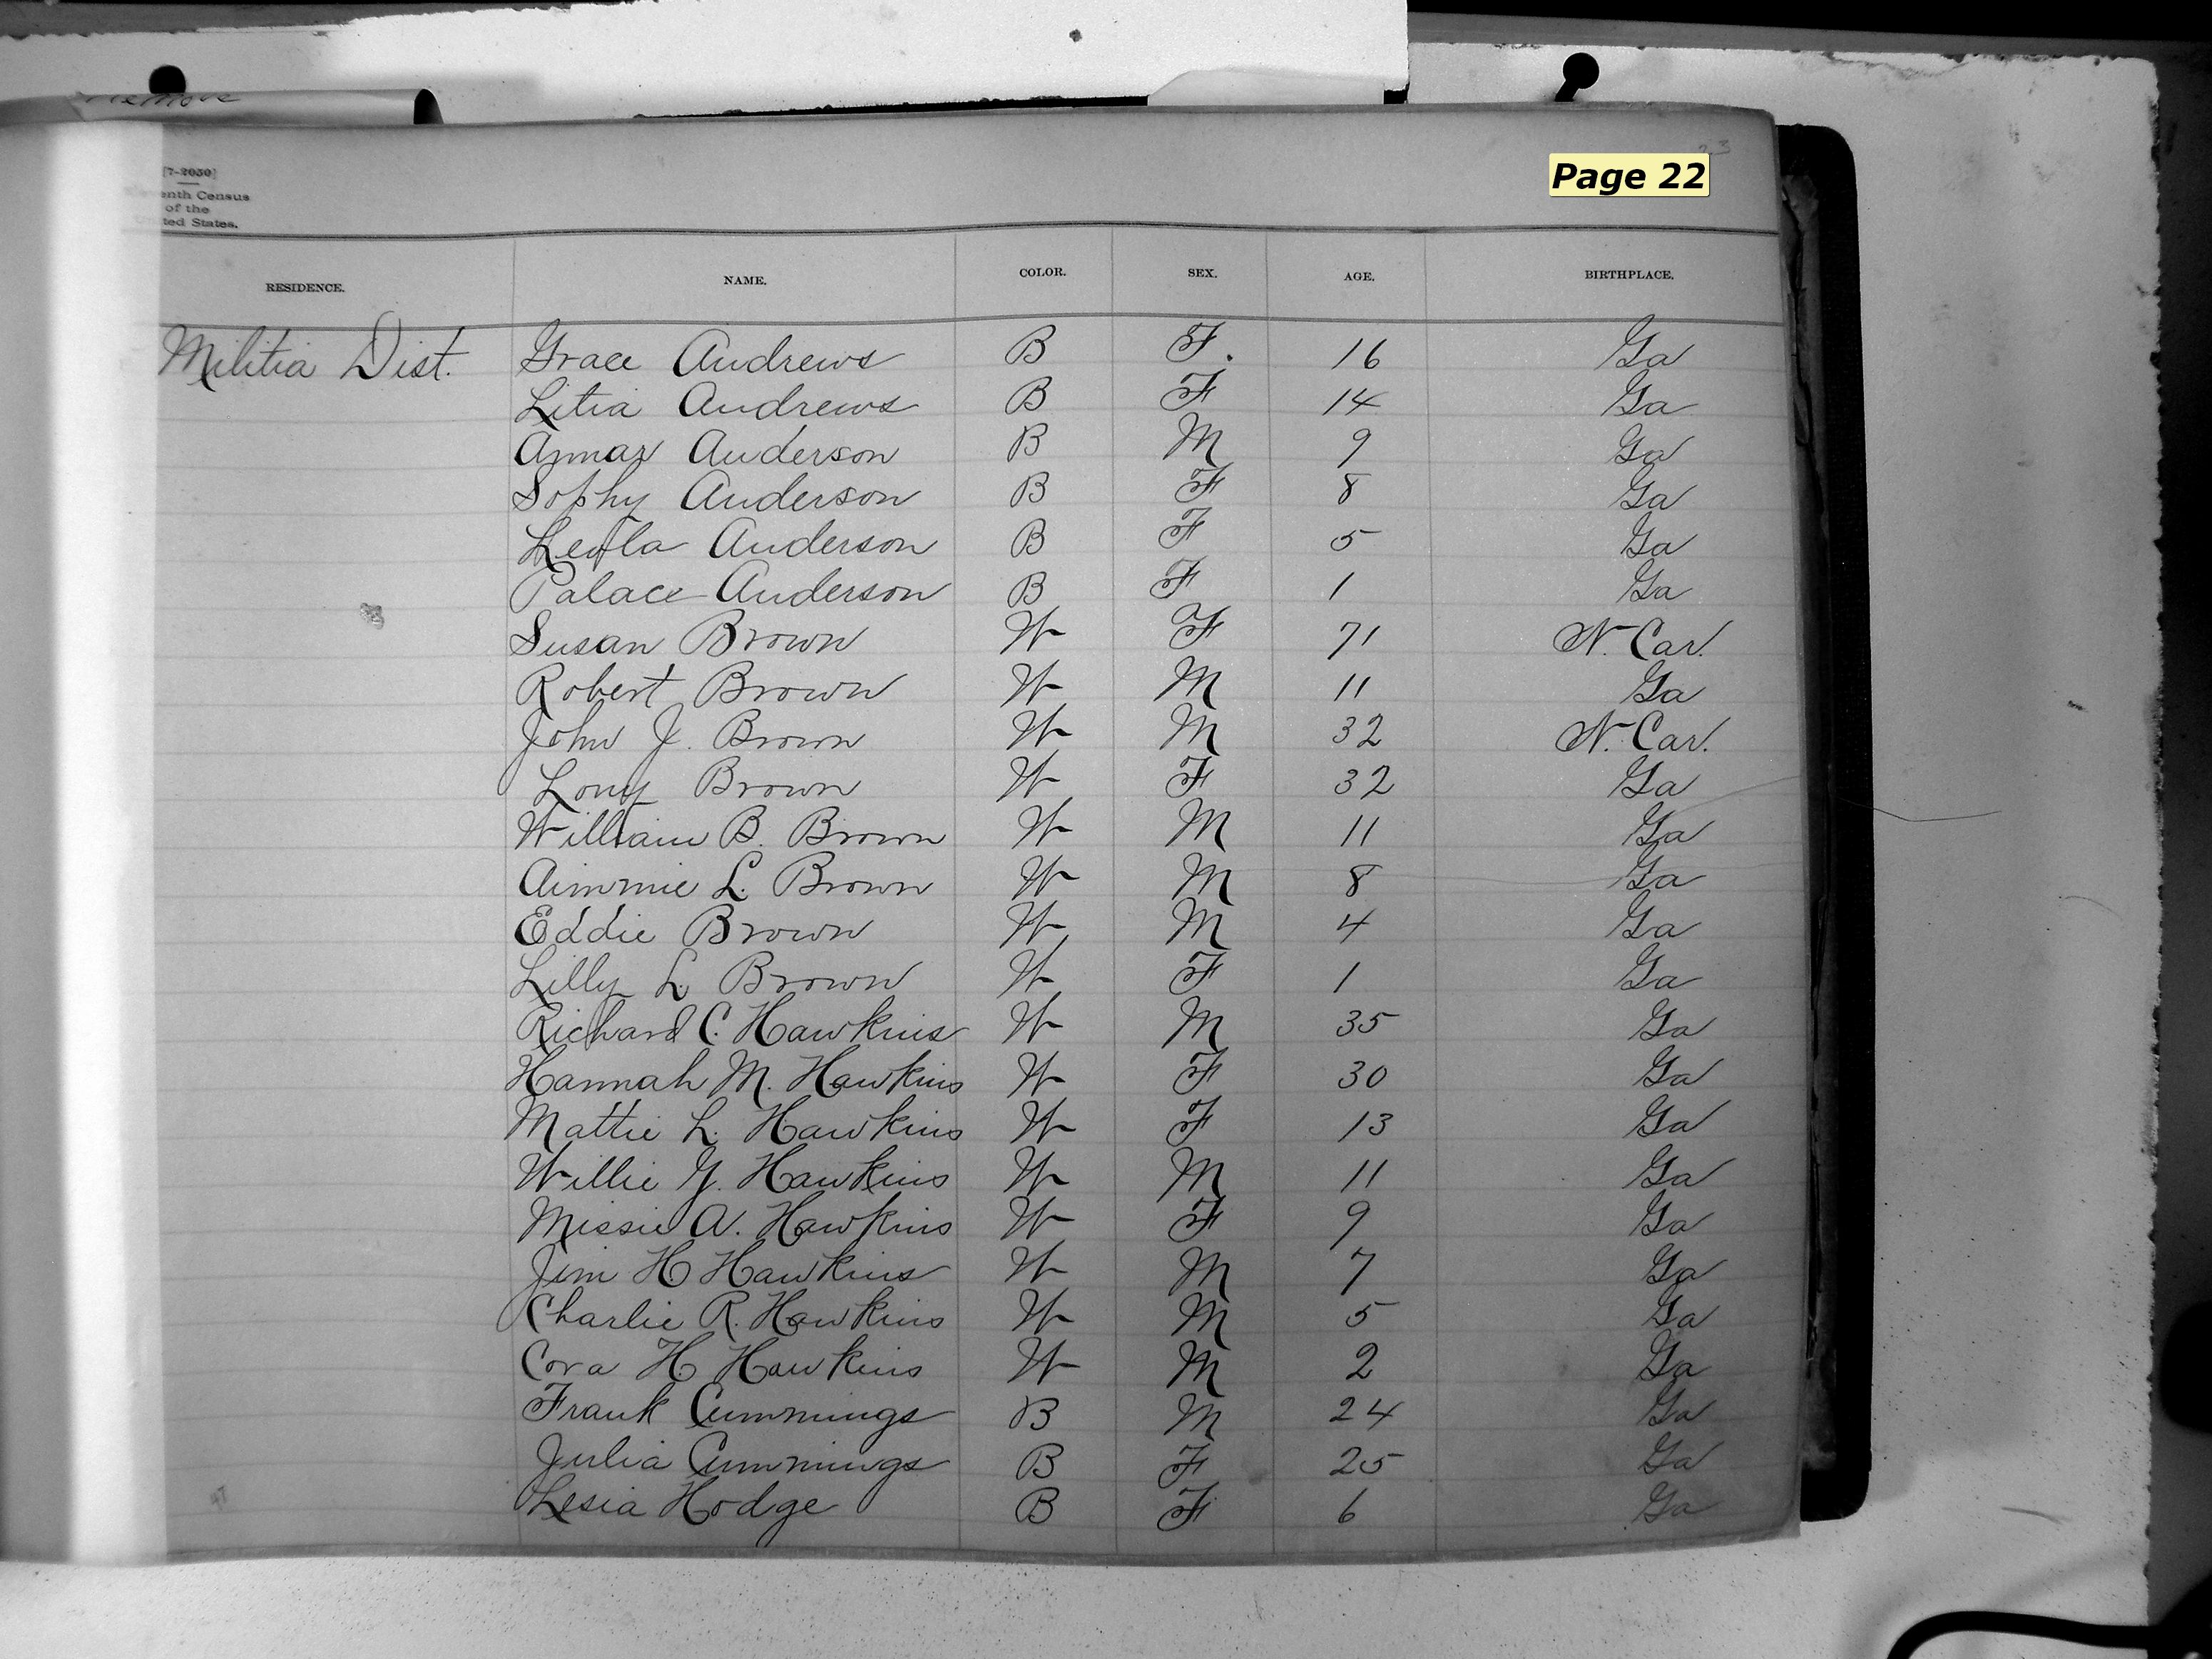 Remove
23
Page 22
[7-2030]
enth Census
of the
ted States.
RESIDENCE. NAME. COLOR. SEX. AGE. BIRTHPLACE.
Militia Dist. Grace Andrews B F. 16 Ga
Litia Andrews B F 14 Ga
Anderson B M 9 Ga
Sophy Anderson B F 8 Ga
Leola Anderson B F 5 Ga
Palace Anderson B F 1 Ga
Susan Brown W F 71 N. Car.
Robert Brown W M 11 Ga
John J. Brown W M 32 N. Car.
Lony Brown W F 32 Ga
William B. Brown W M 11 Ga
Aimmie L. Brown W M 8 Ga
Eddie Brown W M 4 Ga
Lilly L Brown W F 1 Ga
Richard C. Hawkins W M 35 Ga
Hannah M. Hawkins W F 30 Ga
Mattie L. Hawkins W F 13 Ga
Willie Y. Hawkins W M 11 Ga
Missie A. Hawkins W F 9 Ga
Jim H Hawkins W M 7 Ga
Charlie R. Hawkins W M 5 Ga
Cora H Hawkins W M 2 Ga
Frank Cummings B M 24 Ga
Julia Cummings B F 25 Ga
Lesia Hodge B F 6 Ga